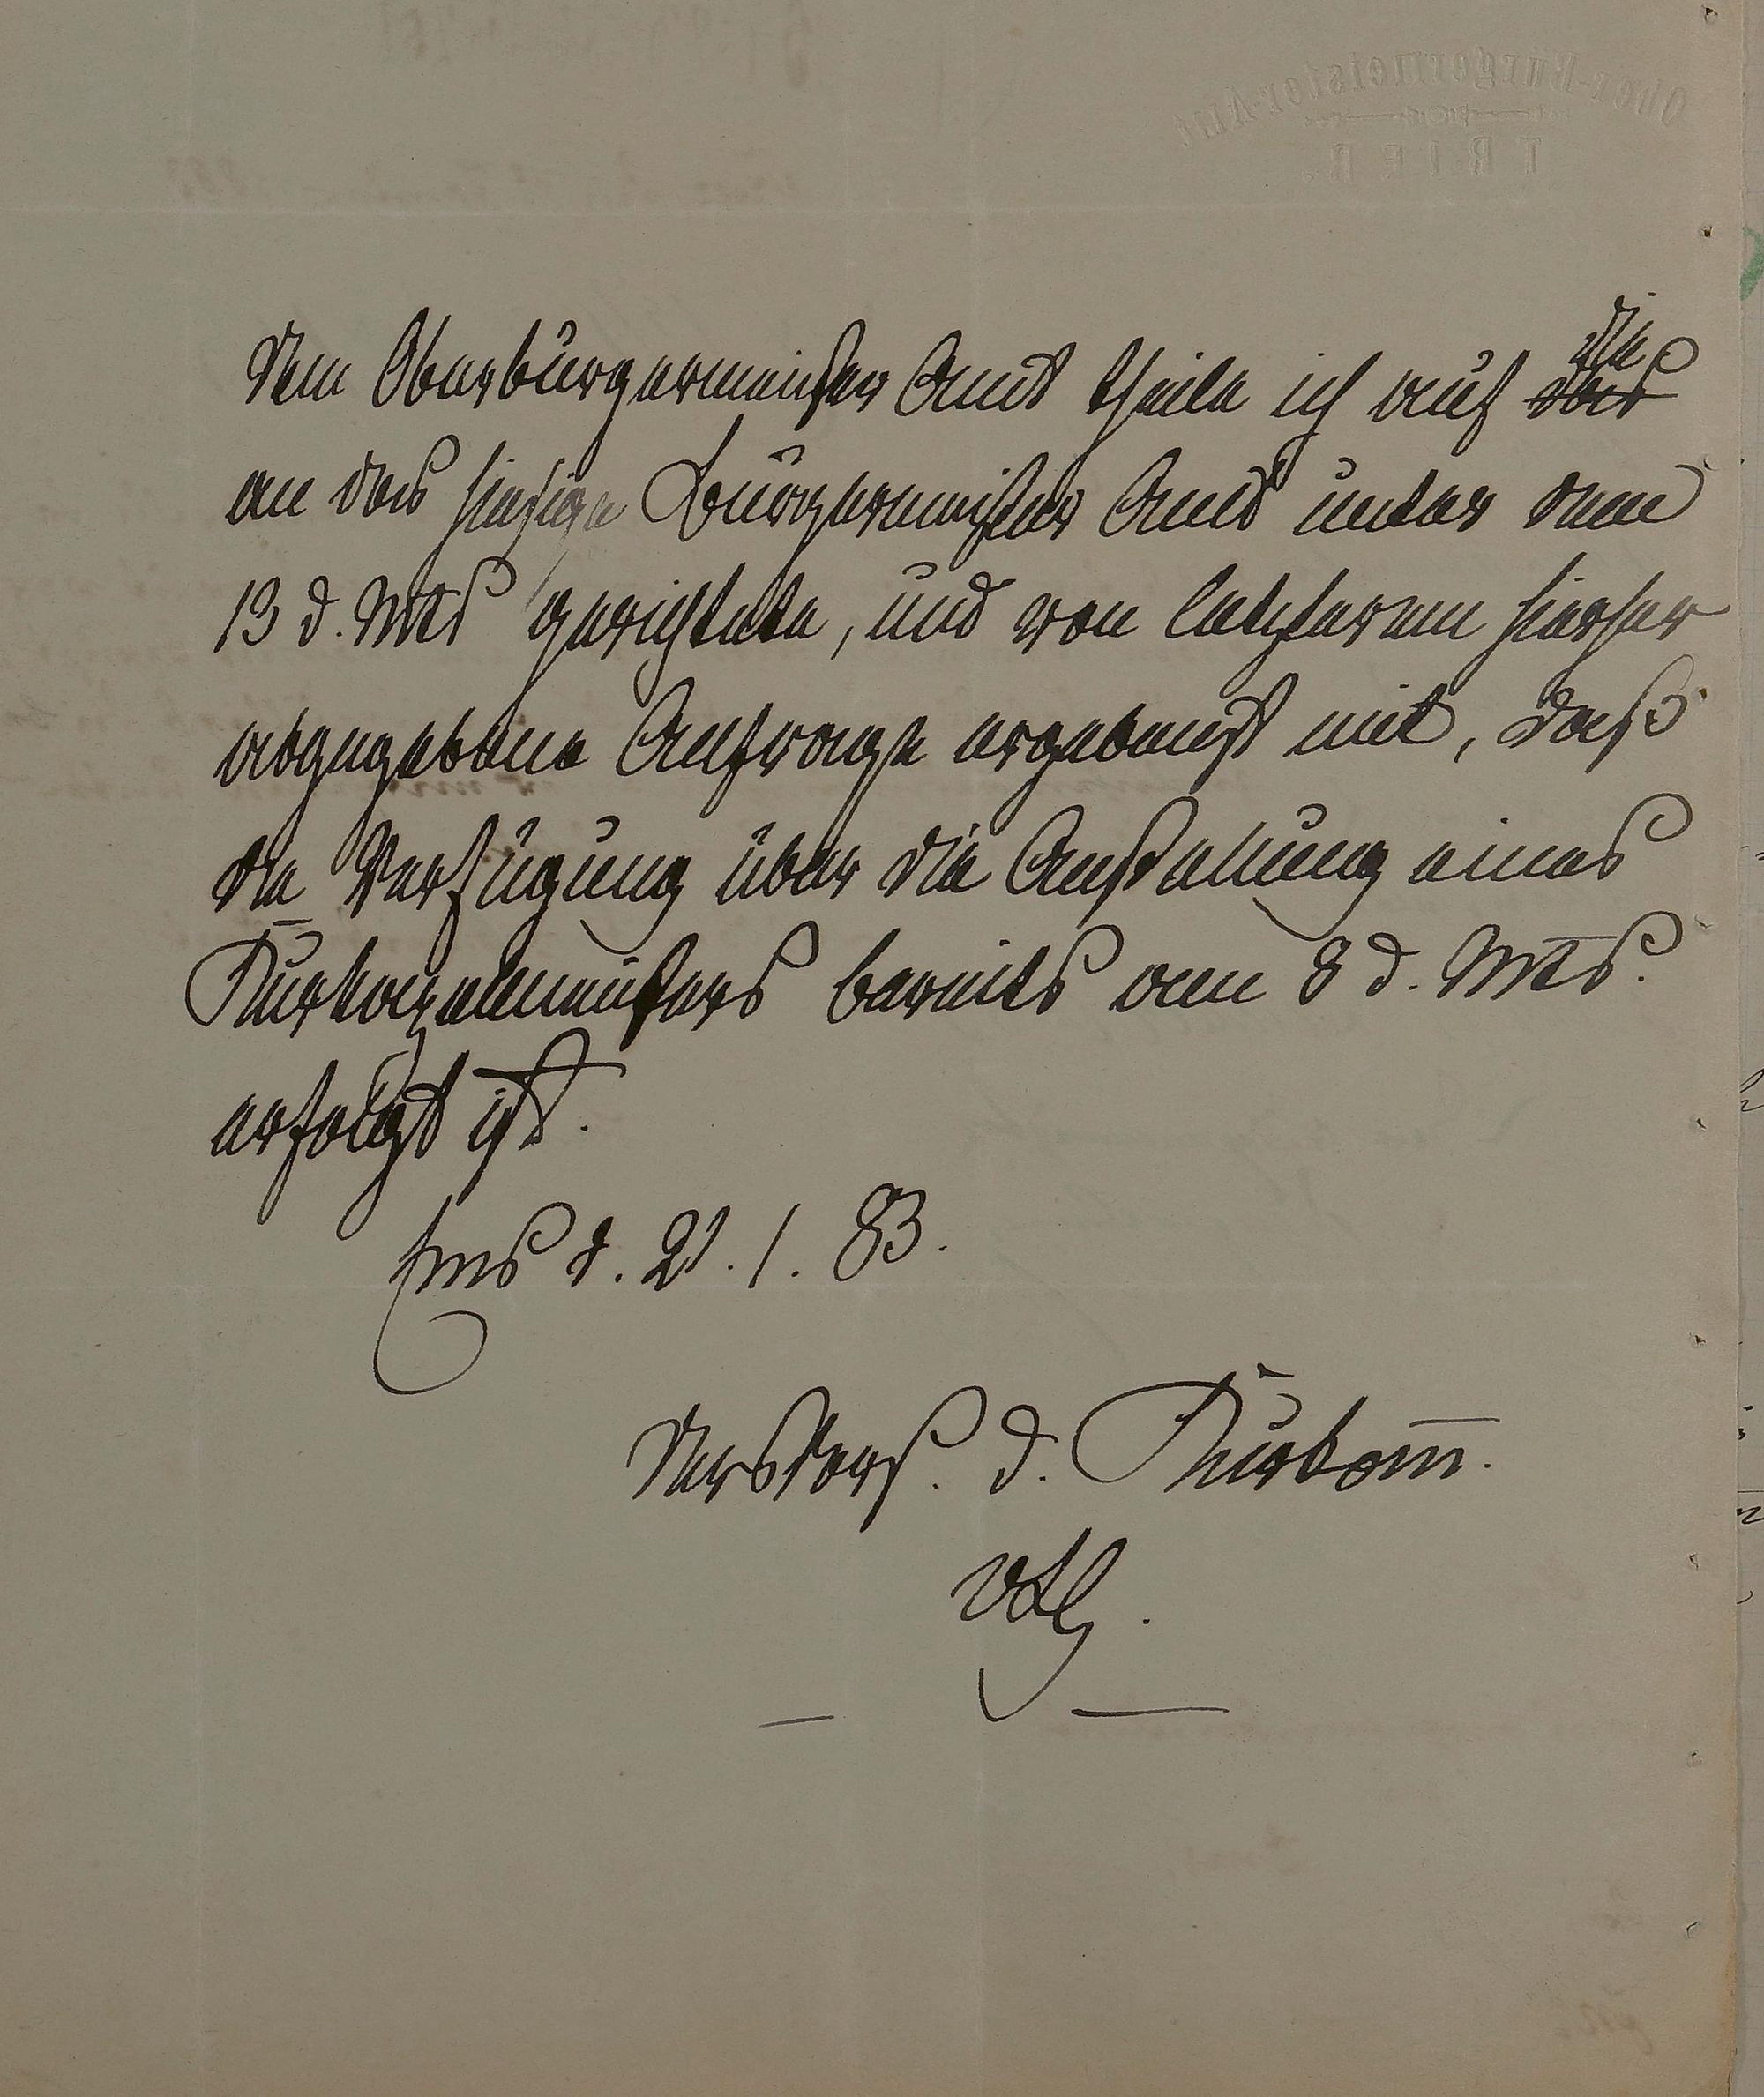 Ober-Bürgermeister-Amt
TRIER.
Dem Oberbürgermeister Amt theile ich auf die
an das hiesige Bürgermeister Amt unter dem
13 d. Mts gerichtete, und von letzterem hierher
abgegebene Anfrage ergebenst mit, daß
die Verfügung über die Anstellung eines
Kurkapellmeisters bereits am 8 d. Mts.
erfolgt ist.
Ems d. 21. 1. 83.
d. Kurkom.